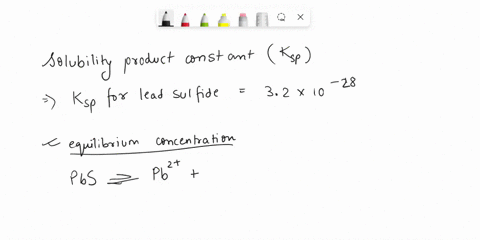 Solubility product constant (Ksp)
⇒ Ksp for lead sulfide = 3.2 × 10^-28
equilibrium concentration
PbS ⇌ Pb^2+ +